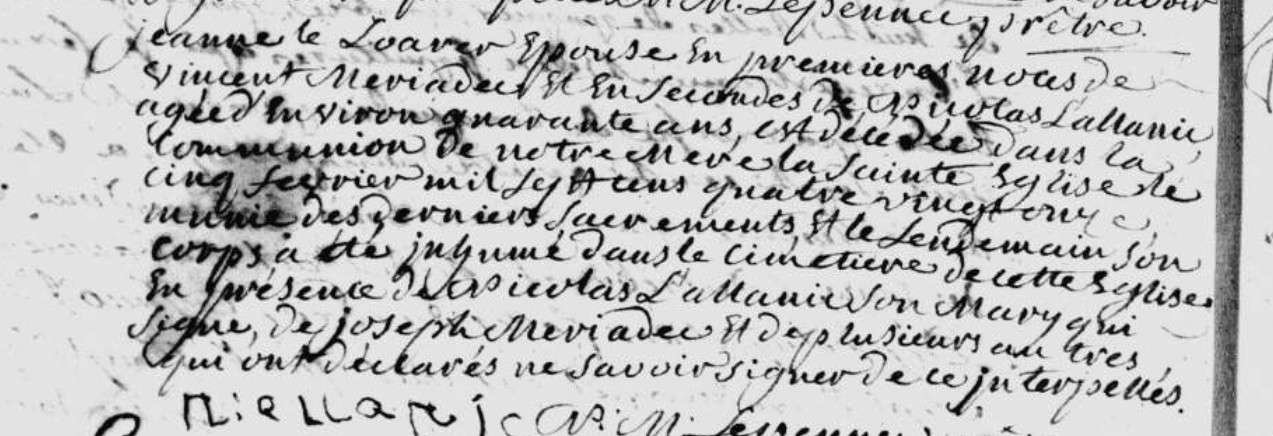 M. Lessennec, prêtre.
jeanne le Loarer Epouse En premieres noces de
Vincent Meriadec, Et En Secondes de Nicolas Lallanic
agée d'Environ quarante ans, est décédée dans la
Communion de notre Mere la Sainte Eglise le
cinq fevrier mil Sept cens quatre vingt onze,
munie des derniers Sacrements, Et le Lendemain Son
corps a été jnhumé dans le Cimetiere de cette Eglise.
En présence de Nicolas Lallanic Son Mary qui
Signe, de joseph Meriadec Et de plusieurs autres
qui ont déclarés ne Savoir Signer de ce jnterpellés.